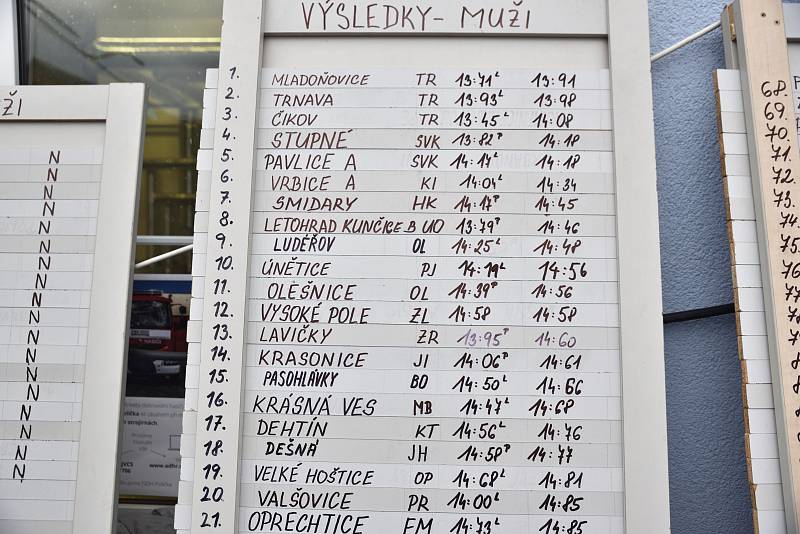 VÝSLEDKY - MUŽI
1. MLADOŇOVICE TR 13:71L 13:91
2. TRNAVA TR 13:93L 13:98
3. ČIKOV TR 13:45L 14:08
4. STUPNÉ SVK 13:82P 14:18
5. PAVLICE A SVK 14:14L 14:18
6. VRBICE A KI 14:04L 14:34
7. SMIDARY HK 14:17P 14:45
8. LETOHRAD KUNČICE B UO 13:79P 14:46
9. LUDÉŘOV OL 14:25L 14:48
10. ÚNĚTICE PJ 14:19L 14:56
11. OLEŠNICE OL 14:39P 14:56
12. VYSOKÉ POLE ZL 14:58 14:58
13. LAVIČKY ZR 13:95P 14:60
14. KRASONICE JI 14:06P 14:61
15. PASOHLÁVKY BO 14:50L 14:66
16. KRÁSNÁ VES MB 14:47L 14:68
17. DEHTÍN KT 14:56L 14:76
18. DEŠNÁ JH 14:58P 14:77
19. VELKÉ HOŠTICE OP 14:68L 14:81
20. VALŠOVICE PR 14:00L 14:85
21. OPRECHTICE FM 14:73L 14:85
ŽI
N
N
N
N
N
N
N
N
N
N
N
N
N
N
N
N
N
68.
69.
70.
71.
72.
73.
74.
75.
76
77
78